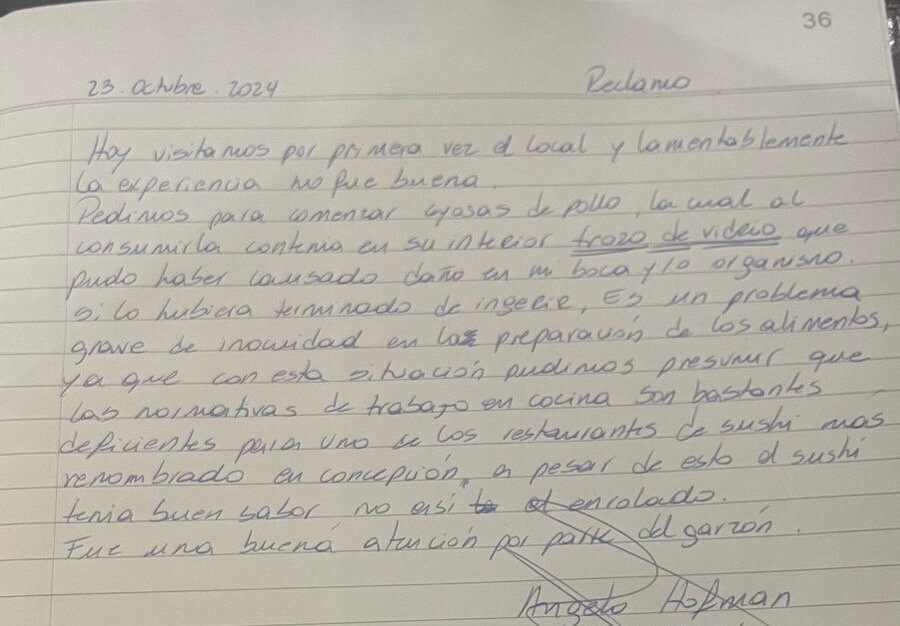 36
23. Octubre. 2024 Reclamo
Hoy visitamos por primera vez el local y lamentablemente
la experiencia no fue buena.
Pedimos para comenzar gyosas de pollo, la cual al
consumirla contenia en su interior trozo de vidrio que
pudo haber causado daño en mi boca y/o organismo.
si lo hubiera terminado de ingerir, Es un problema
grave de inocuidad en las preparación de los alimentos,
ya que con esta situación pudimos presumir que
las normativas de trabajo en cocina son bastantes
deficientes para uno de los restaurantes de sushi mas
renombrado en concepción, a pesar de esto el sushi
tenia buen sabor no asi el encolado.
Fue una buena atención por parte del garzón.
Angelo Hofman